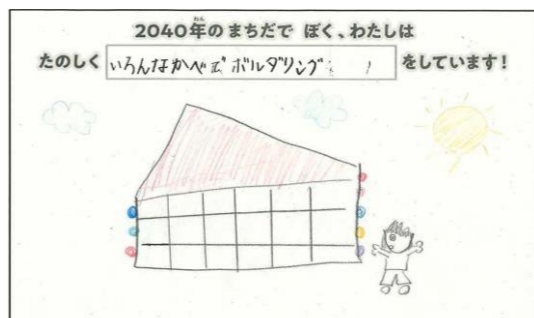 2040年のまちだで ぼく、わたしは
たのしく いろんなかべで ボルダリング をしています!